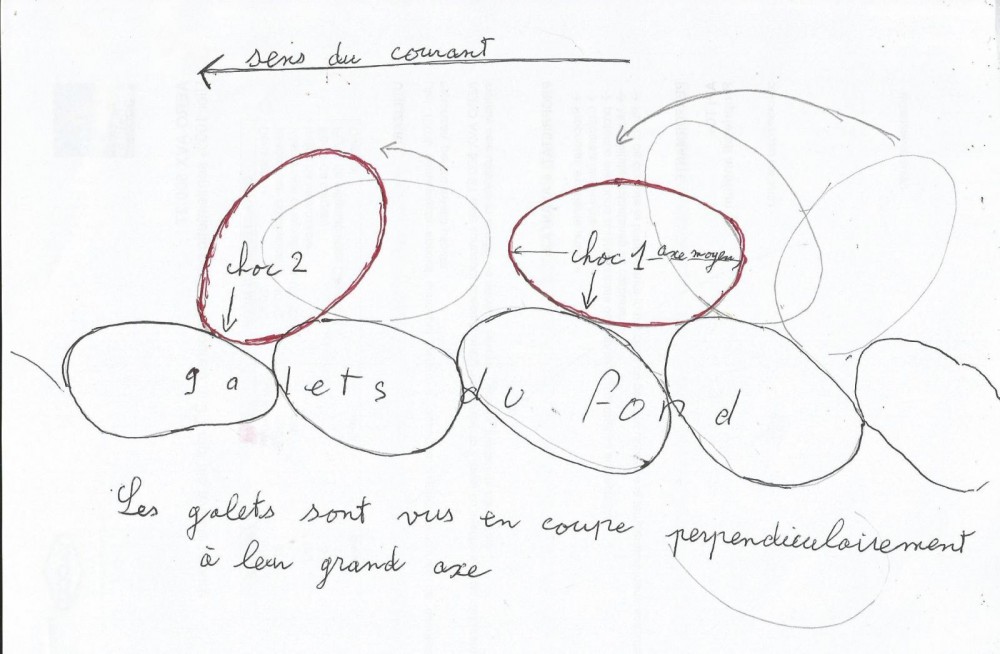 sens du courant
choc 2
choc 1 axe moyen
galets du fond
Les galets sont vus en coupe perpendiculairement
à leur grand axe